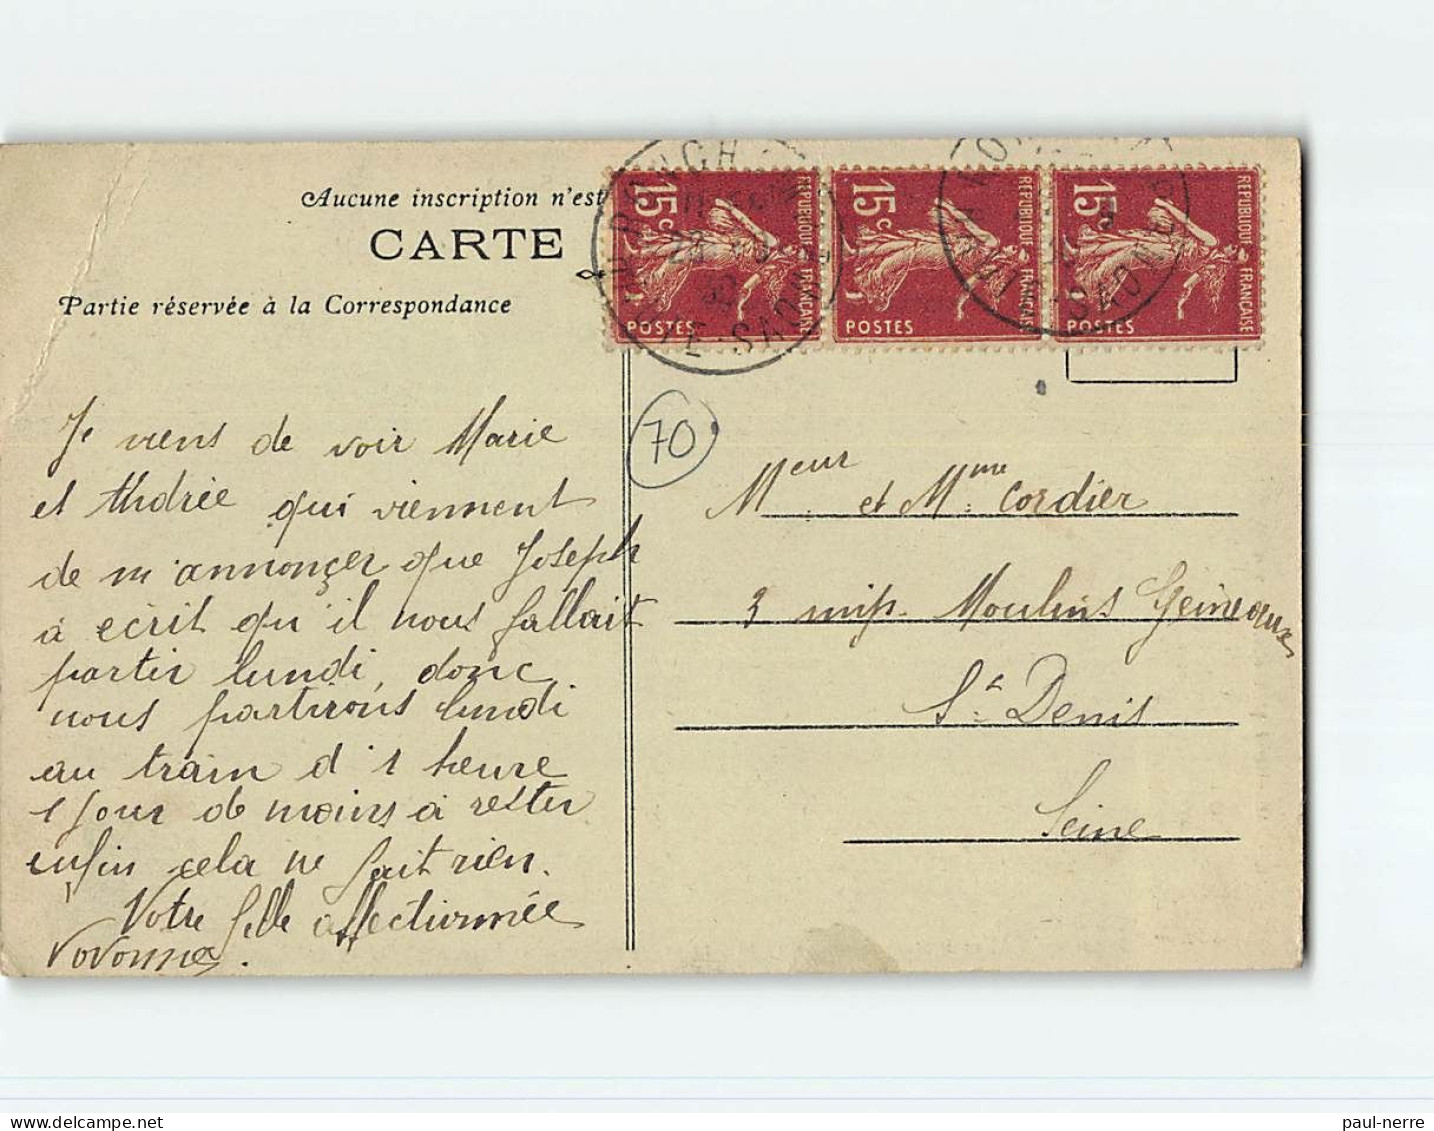 Aucune inscription n'est
CARTE
Partie réservée à la Correspondance
15c
REPUBLIQUE FRANÇAISE
POSTES
15c
REPUBLIQUE FRANÇAISE
POSTES
15c
REPUBLIQUE FRANÇAISE
POSTES
HAUTE-SAONE
70
Je viens de voir Marie
et Andrée qui viennent
de m'annonçer que Joseph
a écrit qu'il nous fallait
partir lundi, donc
nous partirons lundi
au train d'1 heure
1 jour de moins à rester
enfin cela ne fait rien.
Votre fille affectionnée
Vovonne.
Meur et Mme Cordier
3 imp. Moulins Gémeaux
St Denis
Seine
paul-nerre